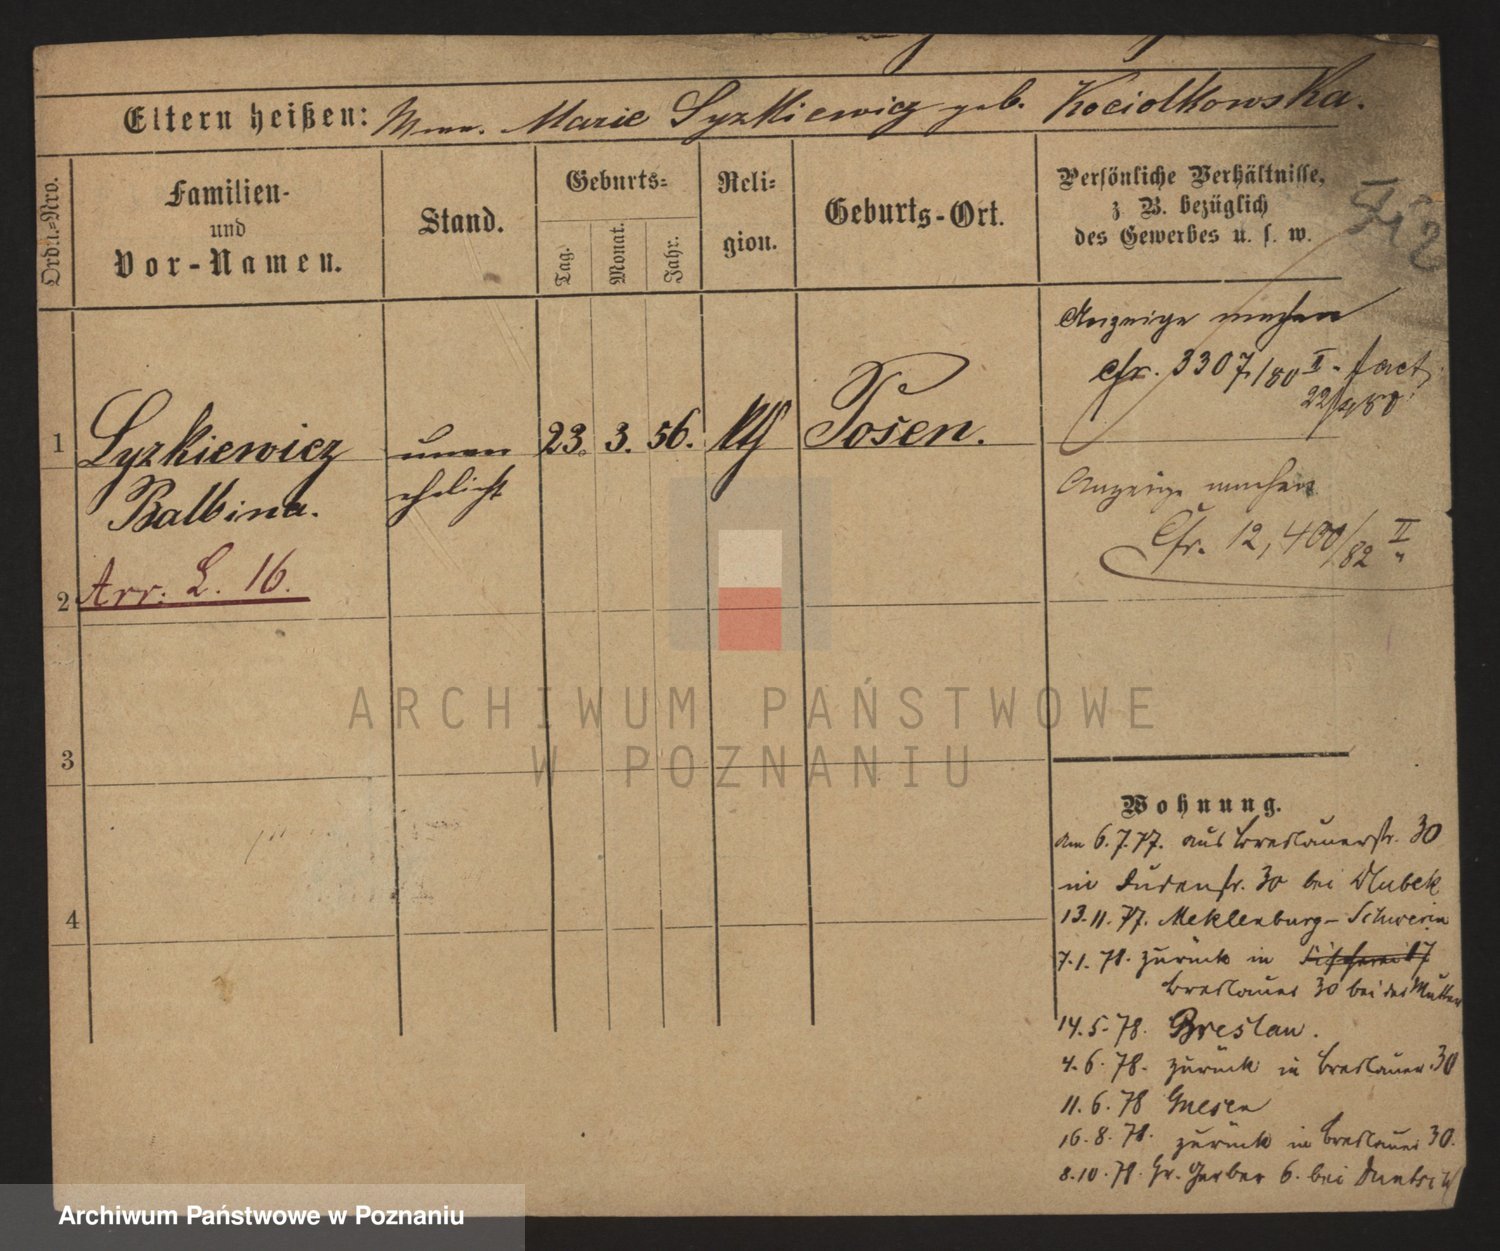 Eltern heißen: Marie Lyzkiewicz geb. Kociolkowska.
Ordn.-Nro.
Familien- und Vor-Namen.
Stand.
Geburts-
Tag. Monat. Jahr.
Reli-gion.
Geburts-Ort.
Persönliche Verhältnisse,
z B. bezüglich
des Gewerbes u. s. w.
Anzeige machen
Cfr. 3307/80 II. fact
22/4 80
1 Lyzkiewicz unver 23. 3. 56. Kth Posen.
Balbina. ehelicht
Anzeige machen
Cfr. 12,400/82 II
Arr. L. 16.
2
3
4
ARCHIWUM PAŃSTWOWE
W POZNANIU
Wohnung.
am 6.7.77. aus Breslauerstr. 30
in Judenstr. 30 bei Dlubek
13.11.77. Meklenburg-Schwerin
7.1.78. zurück in
Breslauer 30 bei der Mutter
14.5.78. Breslau.
4.6.78. zurück in Breslauer 30
11.6.78 Gnesen
16.8.78. zurück in Breslauer 30.
8.10.78. Gr. Gerber 6. bei
Archiwum Państwowe w Poznaniu